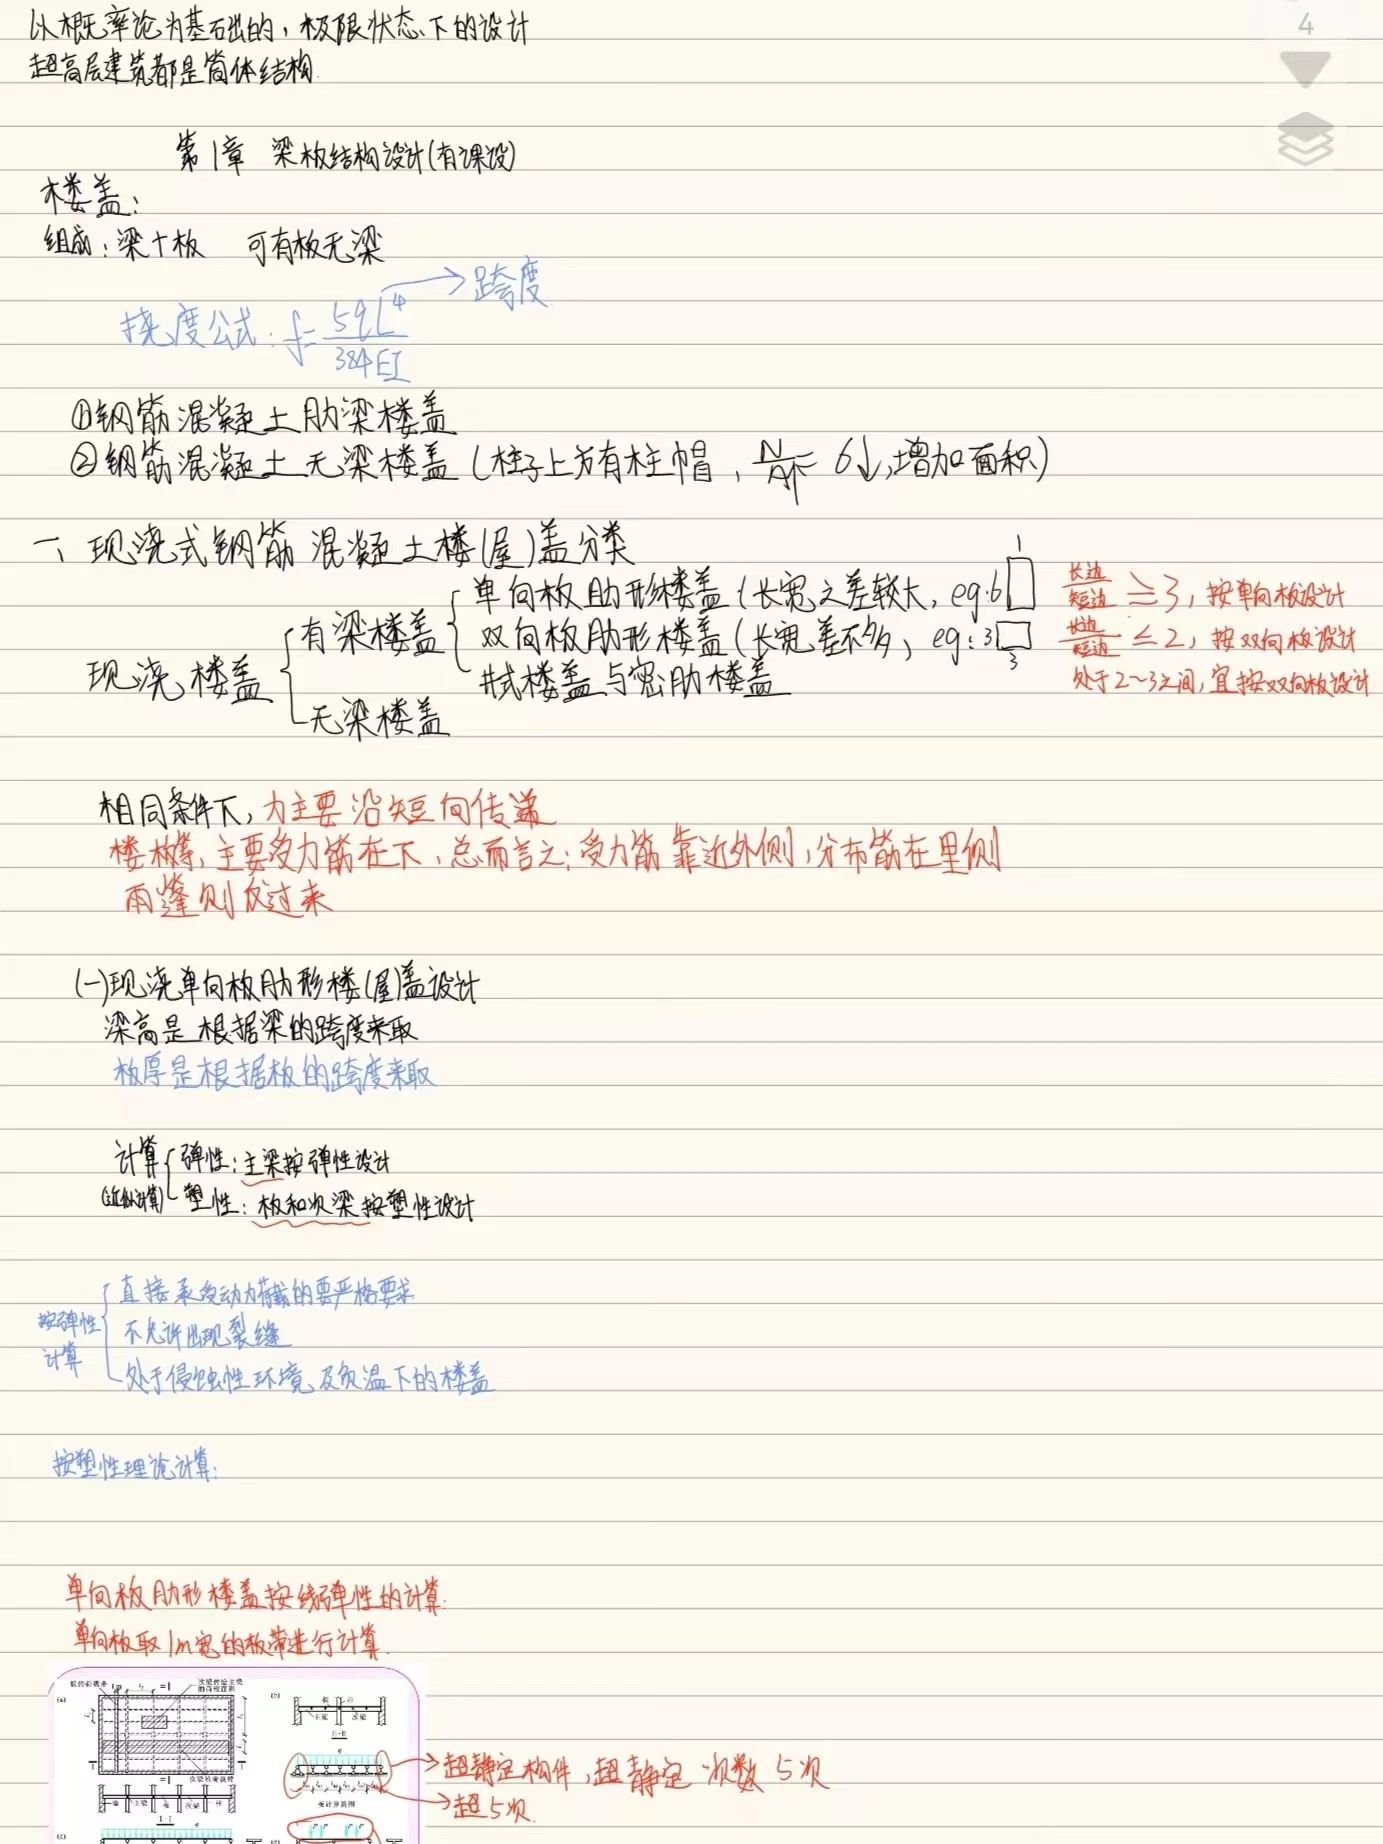 4
以概率论为基础的，极限状态下的设计
超高层建筑都是筒体结构.
第1章 梁板结构设计(有课设)
楼盖：
组成：梁+板 可有板无梁
挠度公式：f=5qL⁴/384EI → 跨度
①钢筋混凝土肋梁楼盖
②钢筋混凝土无梁楼盖（柱子上方有柱帽，N/A↑=6↓，增加面积）
一、现浇式钢筋混凝土楼(屋)盖分类
现浇楼盖
有梁楼盖
单向板肋形楼盖（长宽之差较大，eg:6 1
长边/短边 ≥3，按单向板设计
双向板肋形楼盖（长宽差不多，eg:3 3
长边/短边 ≤2，按双向板设计
井式楼盖与密肋楼盖
处于2~3之间，宜按双向板设计
无梁楼盖
相同条件下，力主要沿短向传递
楼板等，主要受力筋在下，总而言之：受力筋靠近外侧，分布筋在里侧
雨篷则反过来
(一)现浇单向板肋形楼(屋)盖设计
梁高是根据梁的跨度来取
板厚是根据板的跨度来取
计算
弹性：主梁按弹性设计
(近似计算)
塑性：板和次梁按塑性设计
按弹性计算
直接承受动力荷载的要严格要求
不允许出现裂缝
处于侵蚀性环境及负温下的楼盖
按塑性理论计算：
单向板肋形楼盖按线弹性的计算.
单向板取1m宽的板带进行计算.
板的荷载带 1m
次梁传给主梁的荷载面积
(a)
(b)
板 柱
主梁 次梁
II-II
次梁的荷载带
q
→超静定构件，超静定次数 5次
板计算简图
→超5次.
墙 主梁 板 次梁 柱
I-I
(c)